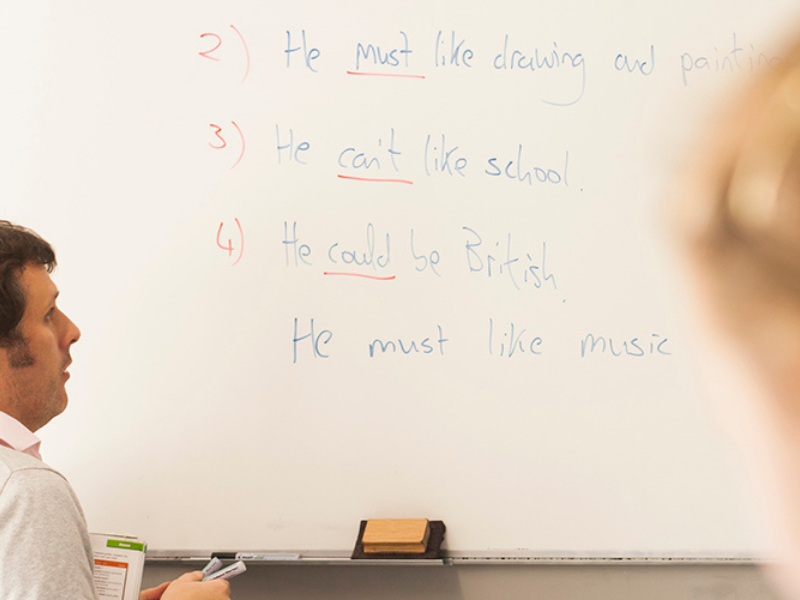 2) He must like drawing and painting
3) He can't like school.
4) He could be British.
He must like music